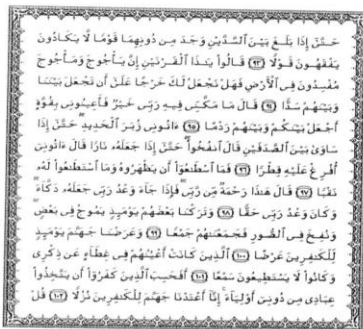 حَتَّىٰٓ إِذَا بَلَغَ بَيْنَ ٱلسَّدَّيْنِ وَجَدَ مِن دُونِهِمَا قَوْمًا لَّا يَكَادُونَ
يَفْقَهُونَ قَوْلًا ﴿٩٣﴾ قَالُوا۟ يَٰذَا ٱلْقَرْنَيْنِ إِنَّ يَأْجُوجَ وَمَأْجُوجَ
مُفْسِدُونَ فِى ٱلْأَرْضِ فَهَلْ نَجْعَلُ لَكَ خَرْجًا عَلَىٰٓ أَن تَجْعَلَ بَيْنَنَا
وَبَيْنَهُمْ سَدًّا ﴿٩٤﴾ قَالَ مَا مَكَّنِّى فِيهِ رَبِّى خَيْرٌ فَأَعِينُونِى بِقُوَّةٍ
أَجْعَلْ بَيْنَكُمْ وَبَيْنَهُمْ رَدْمًا ﴿٩٥﴾ ءَاتُونِى زُبَرَ ٱلْحَدِيدِ حَتَّىٰٓ إِذَا
سَاوَىٰ بَيْنَ ٱلصَّدَفَيْنِ قَالَ ٱنفُخُوا۟ حَتَّىٰٓ إِذَا جَعَلَهُۥ نَارًا قَالَ ءَاتُونِىٓ
أُفْرِغْ عَلَيْهِ قِطْرًا ﴿٩٦﴾ فَمَا ٱسْطَٰعُوٓا۟ أَن يَظْهَرُوهُ وَمَا ٱسْتَطَٰعُوا۟ لَهُۥ
نَقْبًا ﴿٩٧﴾ قَالَ هَٰذَا رَحْمَةٌ مِّن رَّبِّى فَإِذَا جَآءَ وَعْدُ رَبِّى جَعَلَهُۥ دَكَّآءَ
وَكَانَ وَعْدُ رَبِّى حَقًّا ﴿٩٨﴾ وَتَرَكْنَا بَعْضَهُمْ يَوْمَئِذٍ يَمُوجُ فِى بَعْضٍ
وَنُفِخَ فِى ٱلصُّورِ فَجَمَعْنَٰهُمْ جَمْعًا ﴿٩٩﴾ وَعَرَضْنَا جَهَنَّمَ يَوْمَئِذٍ
لِّلْكَٰفِرِينَ عَرْضًا ﴿١٠٠﴾ ٱلَّذِينَ كَانَتْ أَعْيُنُهُمْ فِى غِطَآءٍ عَن ذِكْرِى
وَكَانُوا۟ لَا يَسْتَطِيعُونَ سَمْعًا ﴿١٠١﴾ أَفَحَسِبَ ٱلَّذِينَ كَفَرُوٓا۟ أَن يَتَّخِذُوا۟
عِبَادِى مِن دُونِىٓ أَوْلِيَآءَ إِنَّآ أَعْتَدْنَا جَهَنَّمَ لِلْكَٰفِرِينَ نُزُلًا ﴿١٠٢﴾ قُلْ